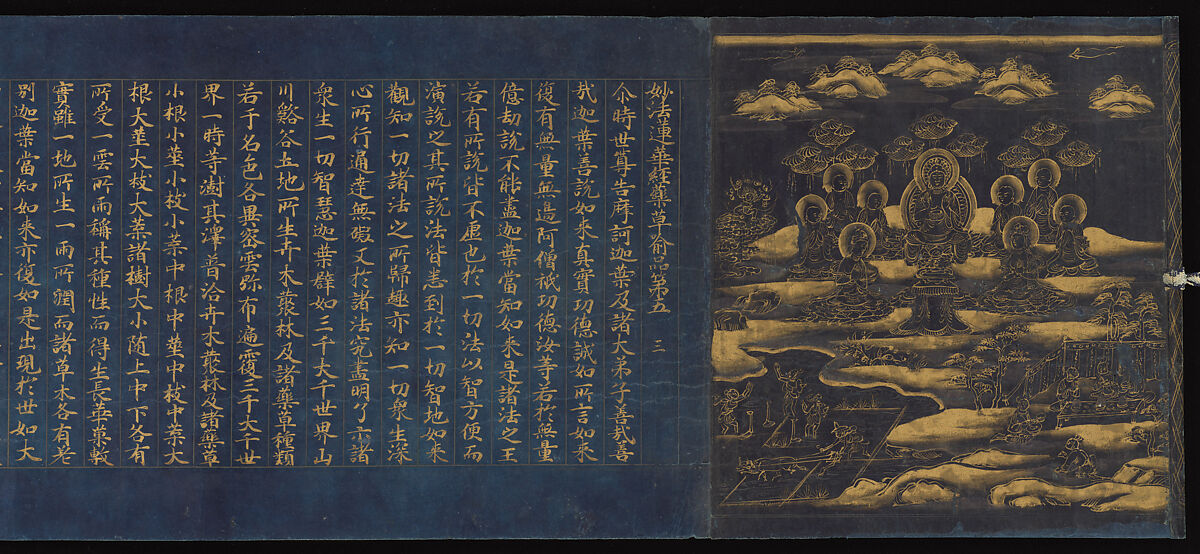 妙法蓮華經藥草喻品第五 三
尒時世尊告摩訶迦葉及諸大弟子善哉善
哉迦葉善說如来真實功德誠如所言如来
復有無量無邊阿僧祇功德汝等若於無量
億劫說不能盡迦葉當知如来是諸法之王
若有所說皆不虛也於一切法以智方便而
演說之其所說法皆悉到於一切智地如来
觀知一切諸法之所歸趣亦知一切衆生深
心所行通達無礙又於諸法究盡明了示諸
衆生一切智慧迦葉譬如三千大千世界山
川谿谷土地所生卉木藂林及諸藥草種類
若干名色各異密雲弥布遍覆三千大千世
界一時等澍其澤普洽卉木藂林及諸藥草
小根小莖小枝小葉中根中莖中枝中葉大
根大莖大枝大葉諸樹大小随上中下各有
所受一雲所雨稱其種性而得生長華菓敷
實雖一地所生一雨所潤而諸草木各有差
別迦葉當知如来亦復如是出現於世如大